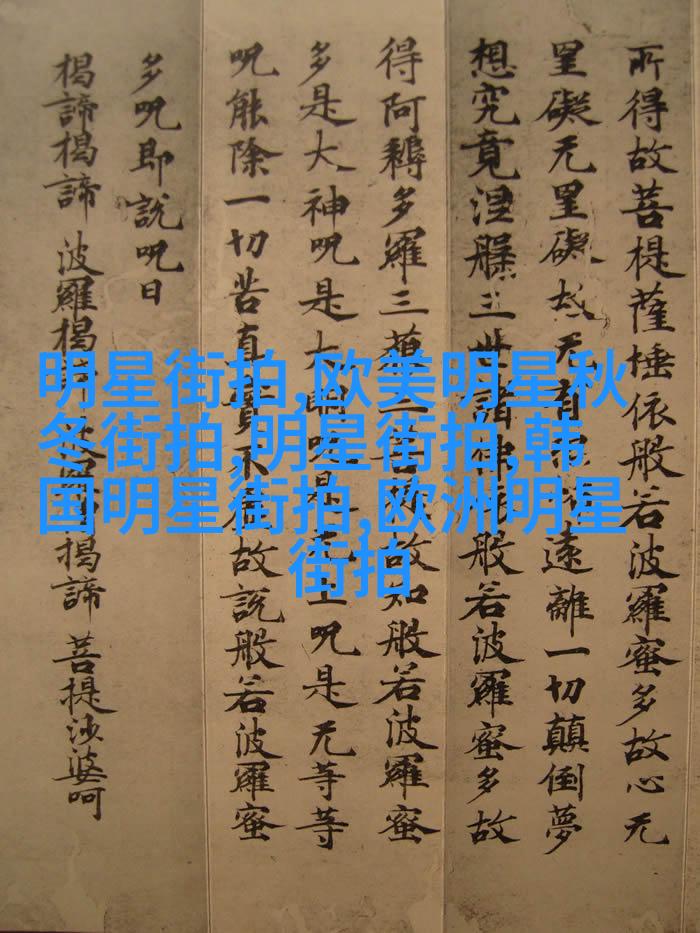 所得故菩提薩埵依般若波羅蜜多故心无
罣礙无罣礙故无有遠離一切顛倒夢
想究竟涅槃三世諸佛依般若波羅蜜多故
得阿耨多羅三藐三菩故知般若波羅蜜
多是大神呪是大明呪是无上呪是无等等
呪能除一切苦真實不虛故說般若波羅蜜
多呪即說呪曰
揭諦揭諦 波羅揭諦 波羅僧揭諦 菩提沙婆呵
明星街拍,欧美明星秋
冬街拍,明星街拍,韩
国明星街拍,欧洲明星
街拍